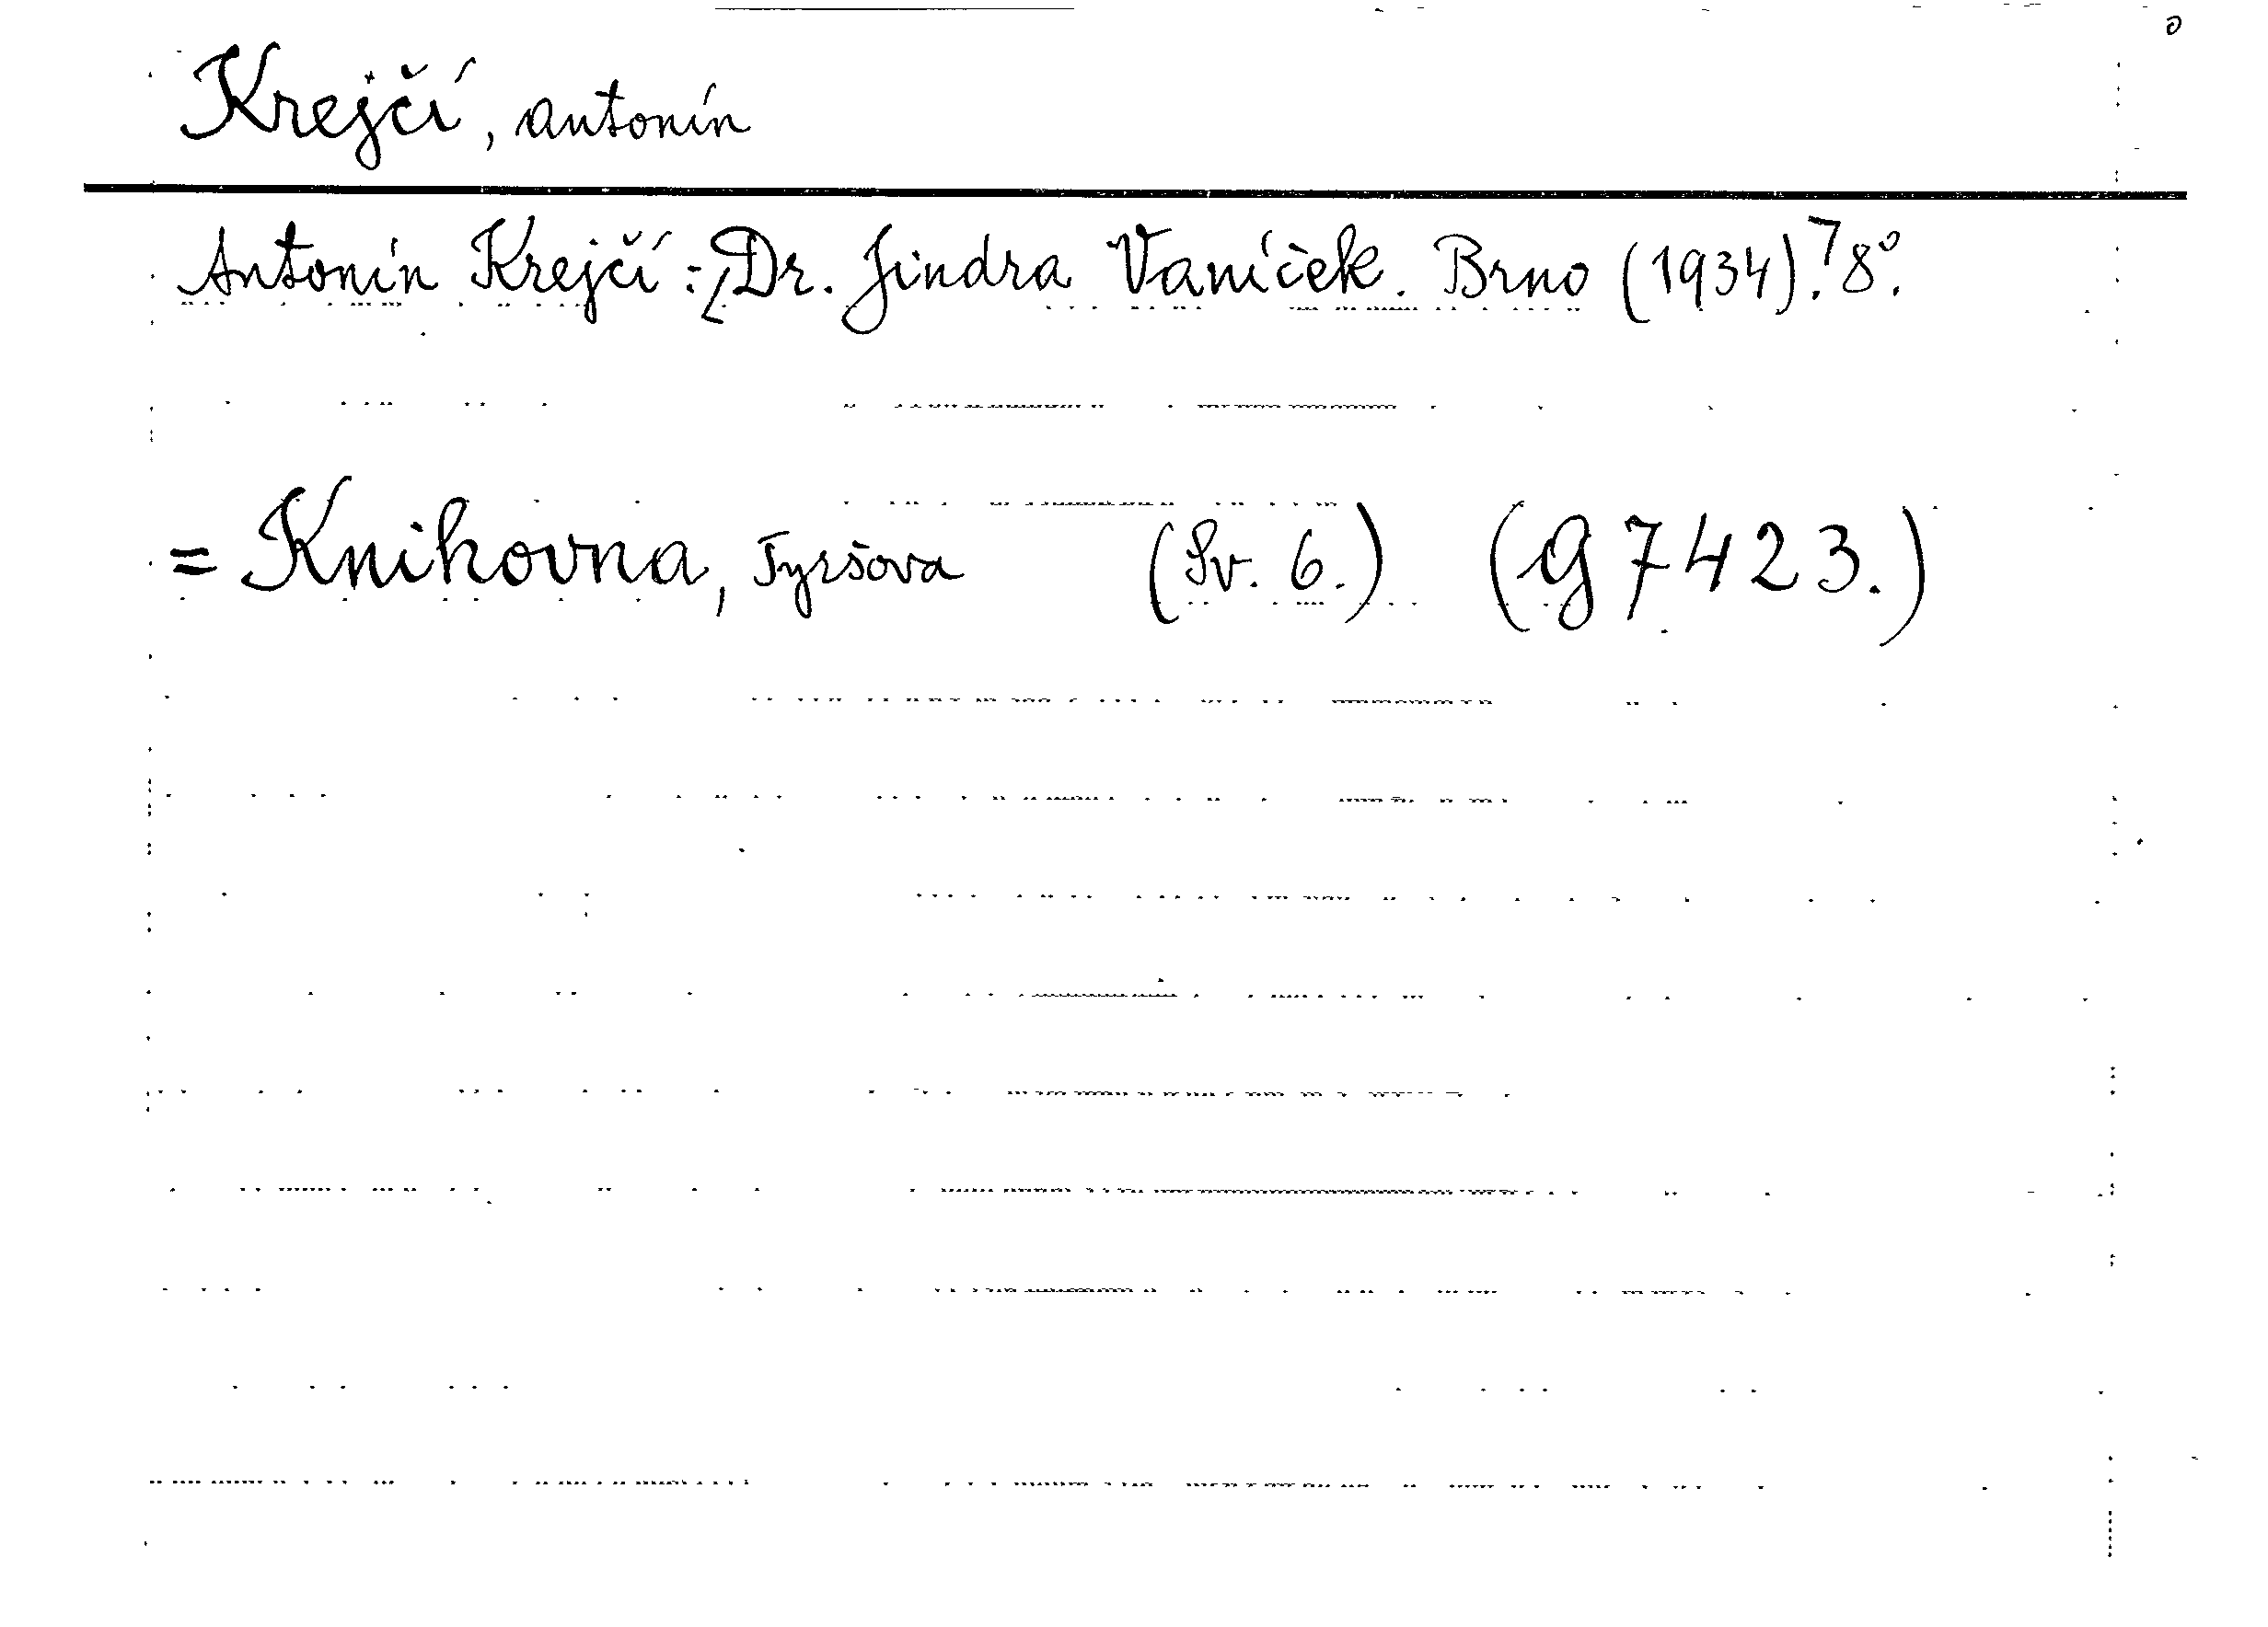 Krejčí, Antonín
Antonín Krejčí: [Dr. Jindra Vaníček. Brno (1934).] 8°.
= Knihovna, Tyršova (Sv. 6.) (G 7423.)